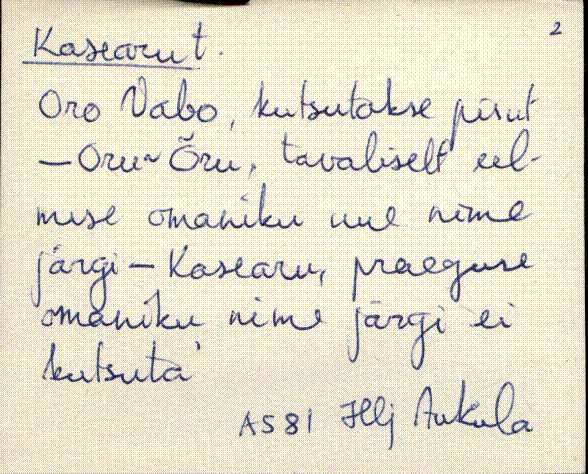 2
Kasearu t.
Oro Vabo, kutsutakse pisut
– Oru ~ Õru, tavaliselt eel-
mise omaniku uue nime
järgi – Kasearu, praeguse
omaniku nime järgi ei
kutsuta'
AS 81 Hlj Aukula